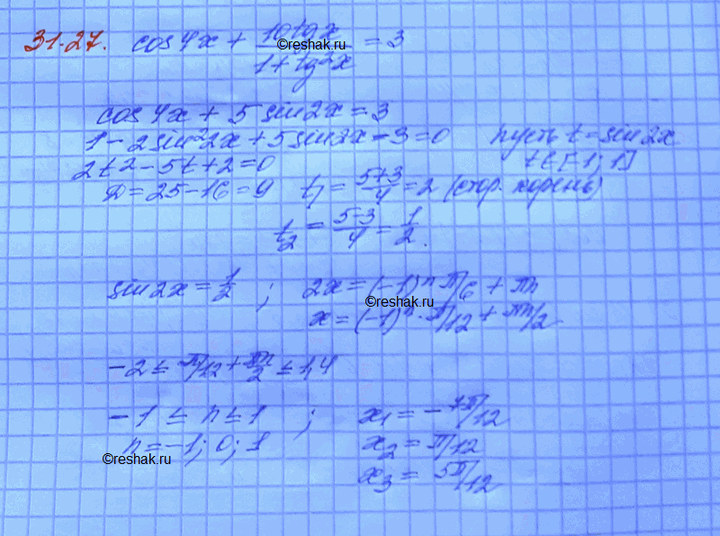 31.27. cos 4x + 10 tg x / 1 + tg²x = 3
©reshak.ru
cos 4x + 5 sin 2x = 3
1 - 2 sin²2x + 5 sin 2x - 3 = 0 пусть t = sin 2x
2t² - 5t + 2 = 0 t ∈ [-1; 1]
D = 25 - 16 = 9 t₁ = 5+3/4 = 2 (стор. корень)
t₂ = 5-3/4 = 1/2.
sin 2x = 1/2 ; 2x = (-1)ⁿ π/6 + πn
©reshak.ru
x = (-1)ⁿ · π/12 + πn/2
-2 ≤ π/12 + πn/2 ≤ 1,4
-1 ≤ n ≤ 1 ; x₁ = -7π/12
n = -1; 0; 1 x₂ = π/12
©reshak.ru
x₃ = 5π/12